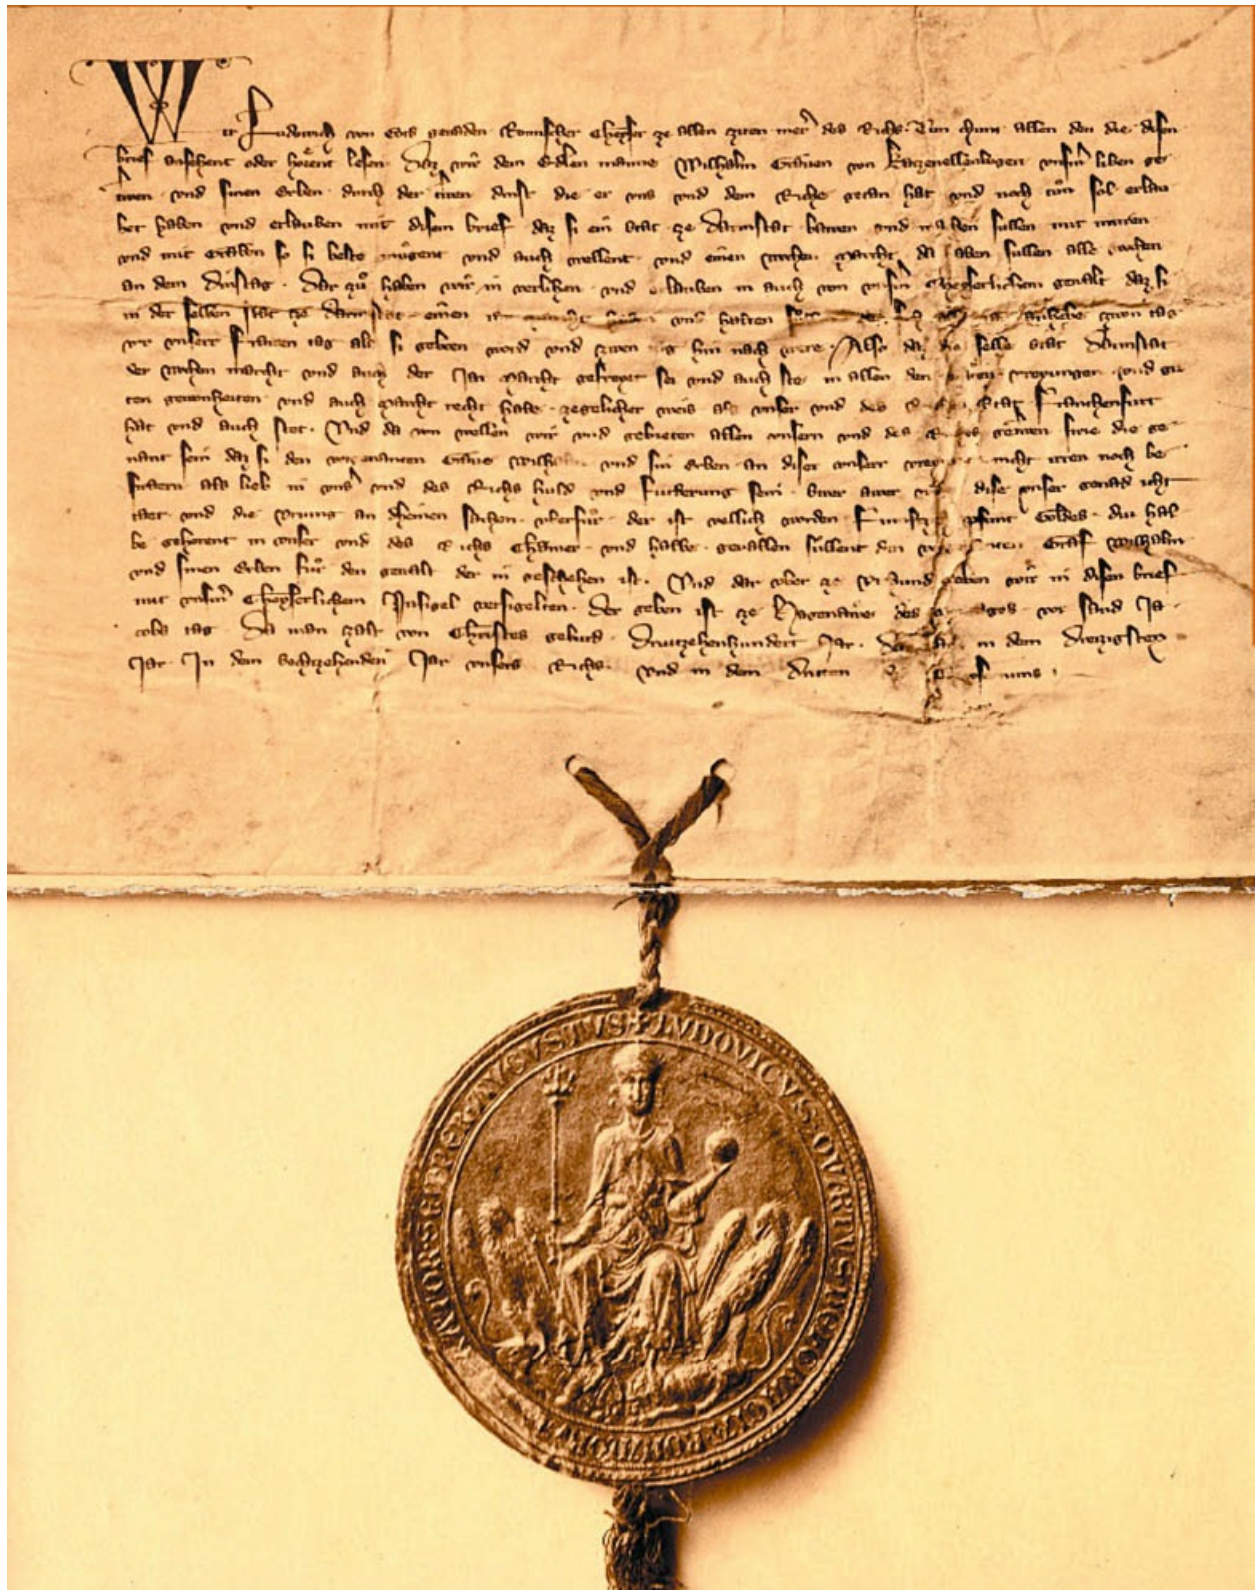 Wir Ludowich von Gots genaden Romischer Cheyser ze allen ziten merer des Richs. Tun chunt allen den die disen
brief ansehent oder hoerent lesen. Daz wir dem Edlen manne Wilhalm Grauen von Katzenellenbogen vnserm liben ge
triwen vnd sinen Erben durch der triwen dinst die er vns vnd dem Riche getan hat vnd noch tun sol erlau
bet haben vnd erlauben mit disem brief daz si ein stat ze Darmstat bawen vnd machen sullen mit muren
vnd mit Graben so si beste mugent vnd auch wellent vnd einen wochen marcht da haben sullen alle wochen
an dem Dinstag. Dar zu haben wir in verlihen vnd erlauben in auch von vnserm Cheyserlichem gewalt daz si
in der selben stat ze Darmstat einen vnd halten zwen tag
vor vnserr Frawen tag als si geborn ward vnd zwen tag hin nach. Also daz die selbe stat Darmstat
der wochen marcht vnd auch der Jar marcht gefreyet sei vnd auch ste in allen den vreyungen vnd gu
ten gewonheiten vnd auch marcht recht habe zegelicher weis als vnser vnd des Richs stat Franchenfurt
hat vnd auch stet. Vnd da von wellen wir vnd gebieten allen vnsern vnd des Richs getriwen swie die ge
nant sein daz si den vorgenanten Graue Wilhalm vnd sin Erben an diser vnserr vreyung nicht irren noch be
swern als lieb in vnser vnd des Richs huld vnd furderung sein. Swer awer vns dise vnser genad icht
vnd die an dheinen sachen vberfur der ist vellich worden Funftzig pfunt Goldes. diu hal
be gehorent in vnser vnd des Richs Chamer vnd halbe geuallen sullent dem Graf Wilhalm
vnd sinen Erben fur den gewalt der in geschehen ist. Vnd dar vber ze Vrchund geben wir in disen brief
mit vnserm Cheyserlichem Insigel versigelten. Der geben ist ze Hagenawe des vor sand Ja
cobs tag. Da man zalt von Christes geburd Driutzehenhundert Jar. in dem Dreizigsten
Jar. In dem Sechtzehenden Jar vnsers Richs. vnd in dem Dritten
LVDOVICVS QVARTVS DEI GRACIA ROMANORVM IMPERATOR SEMPER AVGVSTVS